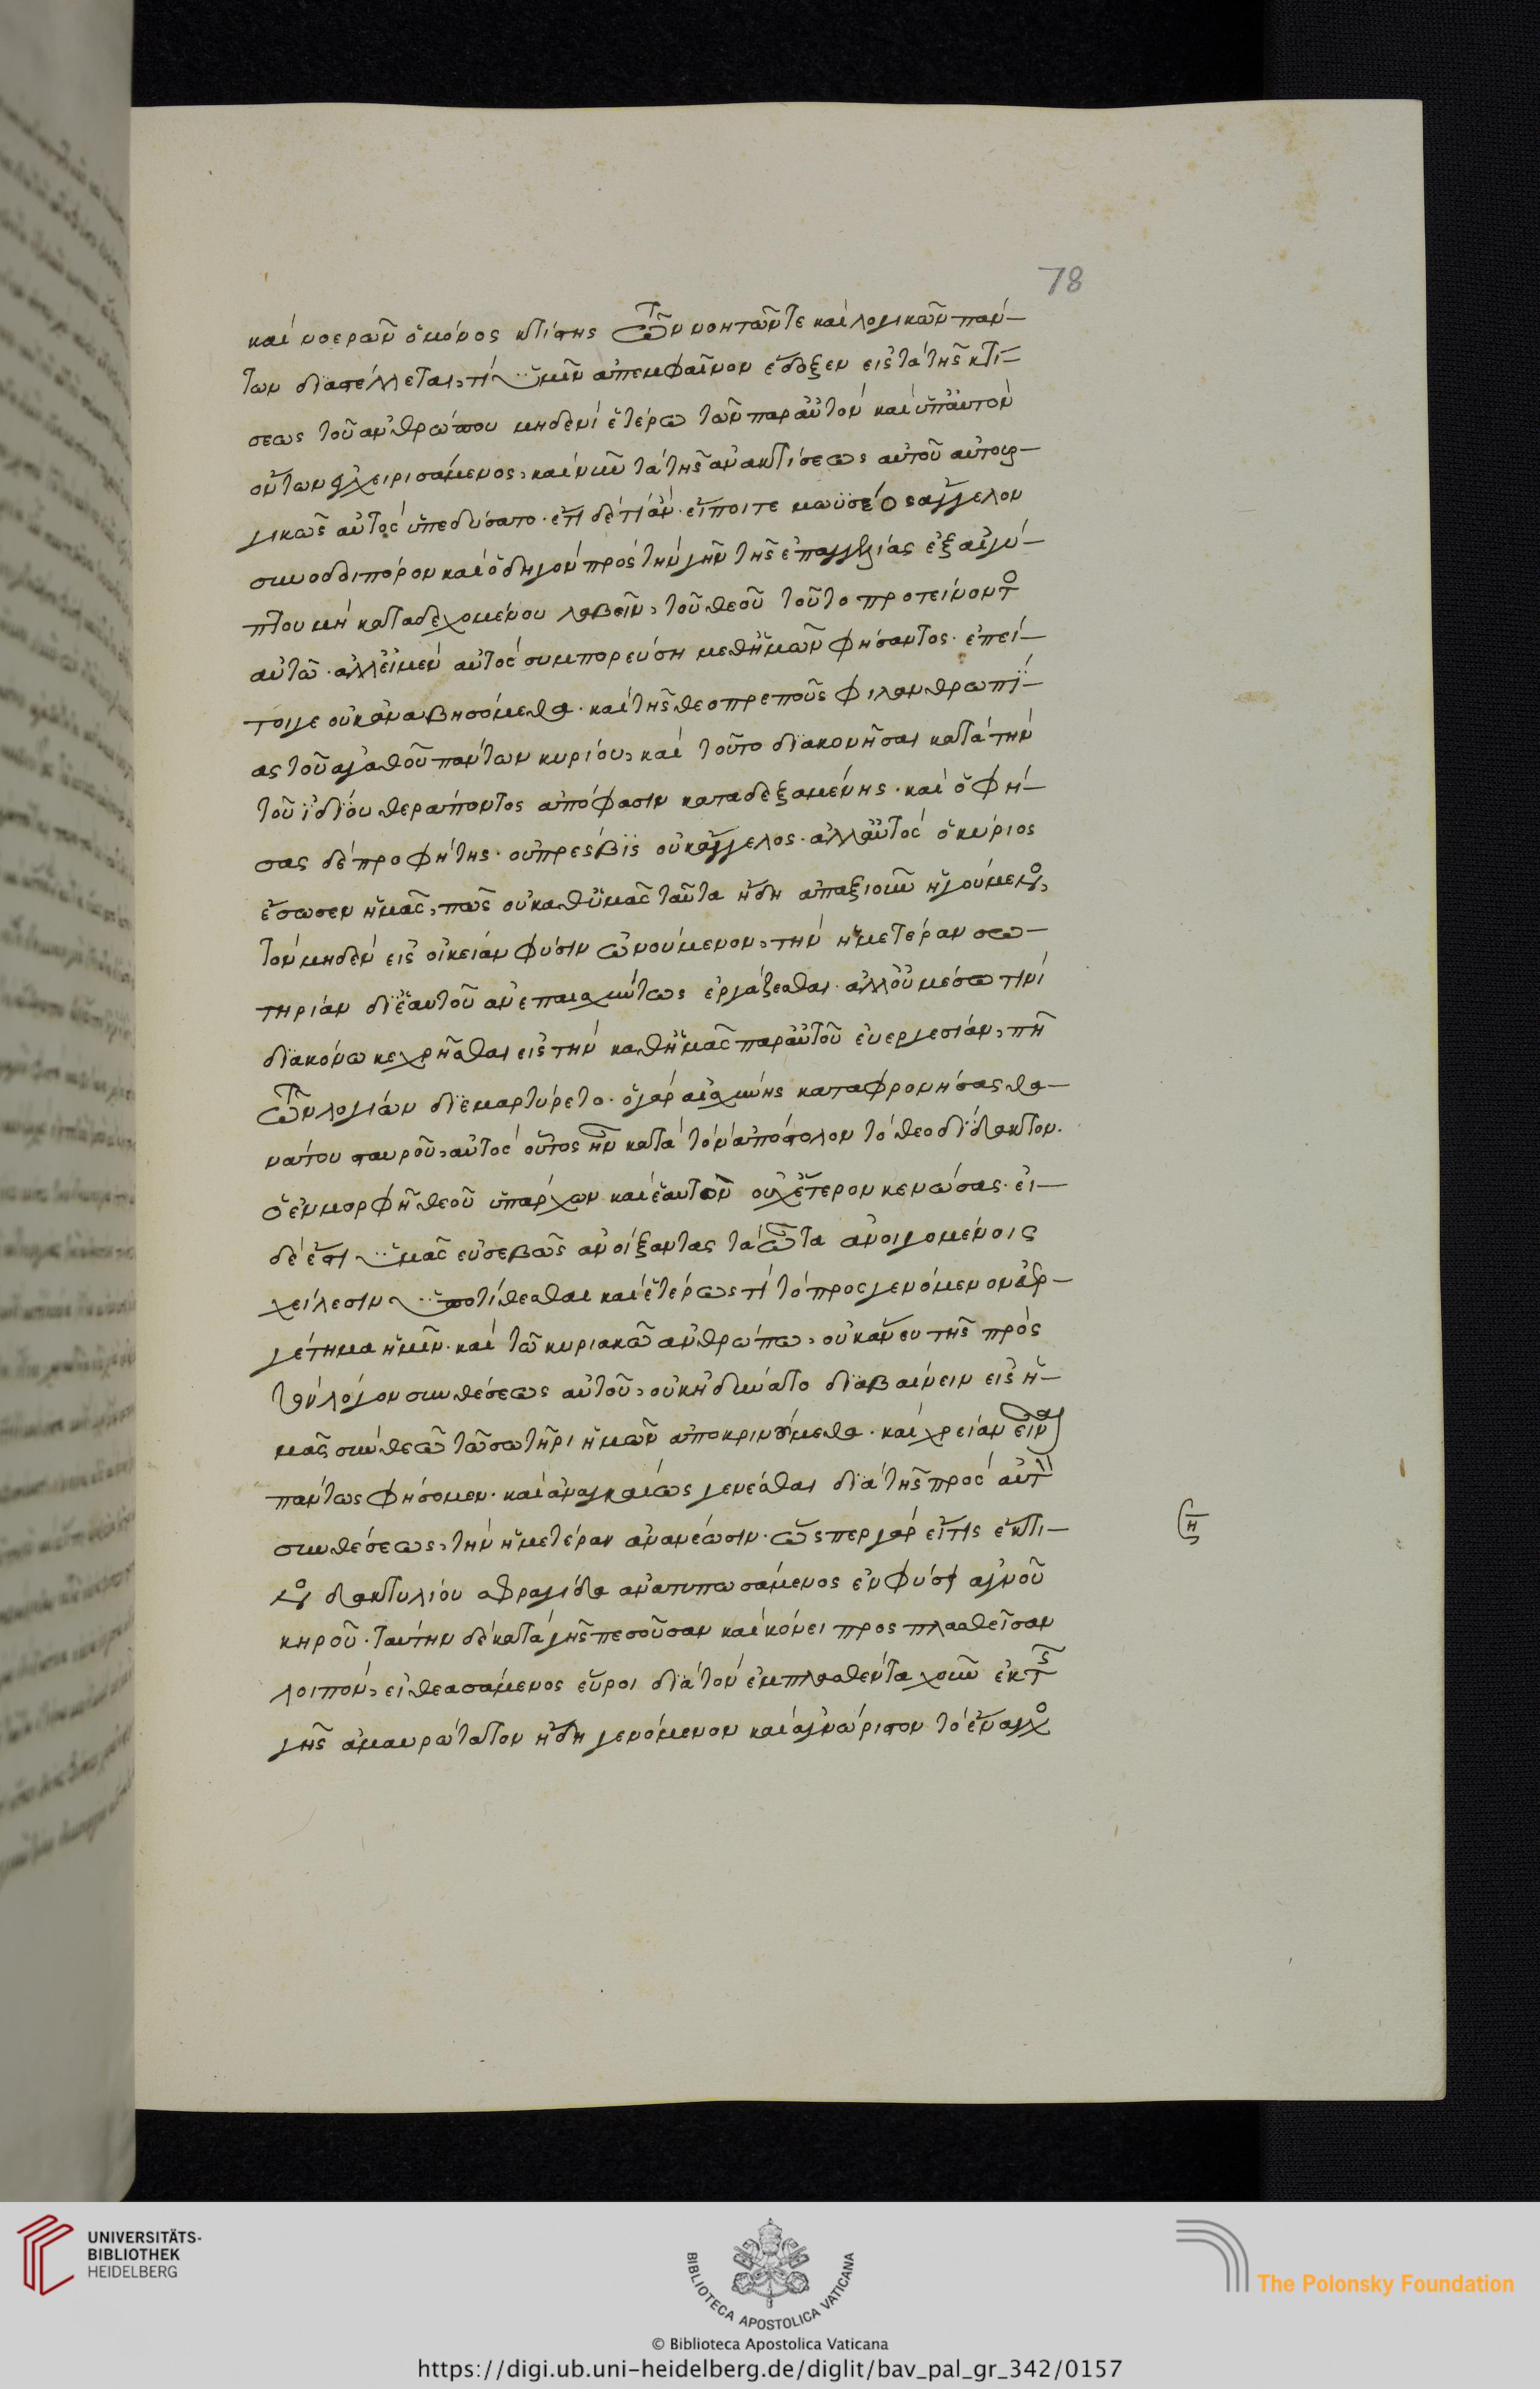 78
καὶ νοερῶν ὁ μόνος κτίστης τῶν νοητῶν τε καὶ λογικῶν πάν-
των διαστέλλεται, τί ὑμῖν ἀπεμφαῖνον ἔδοξεν εἰς τὰ τῆς κτί-
σεως τοῦ ἀνθρώπου μηδενὶ ἑτέρω τῶν παρ αὐτὸν καὶ ὑπ αὐτὸν
ὄντων χειρισάμενος, καὶ νῦν τὰ τῆς ἀνακτίσεως αὐτοῦ αὐτουρ-
γικῶς αὐτὸς ὑπεδύσατο. ἔτι δὲ τί ἂν εἴποιτε μωϋσέος ἄγγελον
συνοδοιπόρον καὶ ὁδηγὸν πρὸς τὴν γῆν τῆς ἐπαγγελίας ἐξ αἰγύ-
πτου μὴ καταδεχομένου λαβεῖν, τοῦ θεοῦ τοῦτο προτείνοντο
αὐτῶ. ἀλλ εἰ μὴ αὐτὸς συμπορεύση μεθ ἡμῶν φήσαντος. ἐπεί-
τοιγε οὐκ ἀναβησόμεθα. καὶ τῆς θεοπρεποῦς φιλανθρωπί-
ας τοῦ ἀγαθοῦ πάντων κυρίου, καὶ τοῦτο διακονῆσαι κατὰ τὴν
τοῦ ἰδίου θεράποντος ἀπόφασιν καταδεξαμένης. καὶ ὁ φή-
σας δὲ προφήτης. οὐ πρέσβϊς οὐκ ἄγγελος. ἀλλ αὐτὸς ὁ κύριος
ἔσωσεν ἡμᾶς, πῶς οὐ καθ ὑμᾶς ταῦτα ἤδη ἀπαξιοῦν ἡγούμενο,
τὸν μηδὲν εἰς οἰκείαν φύσιν ὠνούμενον, τὴν ἡμετέραν σω-
τηρίαν δι ἑαυτοῦ ἀνεπαισχύντως ἐργάζεσθαι. ἀλλ οὐ μέσω τινὶ
διακόνω κεχρῆσθαι εἰς τὴν καθ ἡμᾶς παρ αὐτοῦ εὐεργεσίαν, πῆ
τῶν λογίων διεμαρτύρετο. ὁ γὰρ αἰσχύνης καταφρονήσας θα-
νάτου σταυροῦ, αὐτὸς οὗτος ἦν κατὰ τὸν ἀπόστολον τὸ θεοδίδακτον.
ὁ ἐν μορφῆ θεοῦ ὑπάρχων καὶ ἑαυτὸν οὐχ ἕτερον κενώσας. εἰ-
δὲ ἔστι ὑμᾶς εὐσεβῶς ἀνοίξαντας τὰ ὦτα ἀνοιγομένοις
χείλεσιν ὑποτίθεσθαι καὶ ἑτέρως τί τὸ προσγενόμενον εὐερ-
γέτημα ἡμῖν. καὶ τῶ κυριακῶ ἀνθρώπω, οὐκ ἄνευ τῆς πρὸς
τὸν λόγον συνθέσεως αὐτοῦ, οὐκ ἠδύνατο διαβαίνειν εἰς ἡ-
μᾶς σὺν θεῶ τῶ σωτῆρι ἡμῶν ἀποκρινούμεθα. καὶ χρείαν εἶναι
πάντως φήσομεν. καὶ ἀναγκαίως γενέσθαι διὰ τῆς πρὸς αὐτὸν
συνθέσεως, τὴν ἡμετέραν ἀνανέωσιν. ὥσπερ γὰρ εἴ τις ἔκτι-
νο δακτυλίου σφραγίδα ἀνατυπωσάμενος ἐν φύσει ἁγνοῦ
κηροῦ. ταύτην δὲ κατὰ γῆς πεσοῦσαν καὶ κόνει προσπλασθεῖσαν
λοιπὸν, εἰ θεασάμενος εὕροι διὰ τὸν ἐμπλασθέντα χοῦν ἐκ τῆς
γῆς ἀμαυρώτατον ἤδη γενόμενον καὶ ἀγνώριστον τὸ ἐναρχο
UNIVERSITÄTS-
BIBLIOTHEK
HEIDELBERG
BIBLIOTECA APOSTOLICA VATICANA
The Polonsky Foundation
© Biblioteca Apostolica Vaticana
https://digi.ub.uni-heidelberg.de/diglit/bav_pal_gr_342/0157